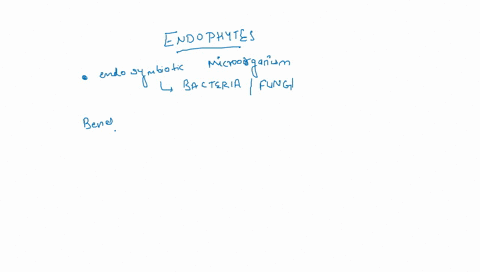 ENDOPHYTES
• endosymbiotic microorganism
↳ BACTERIA / FUNGI
Bene